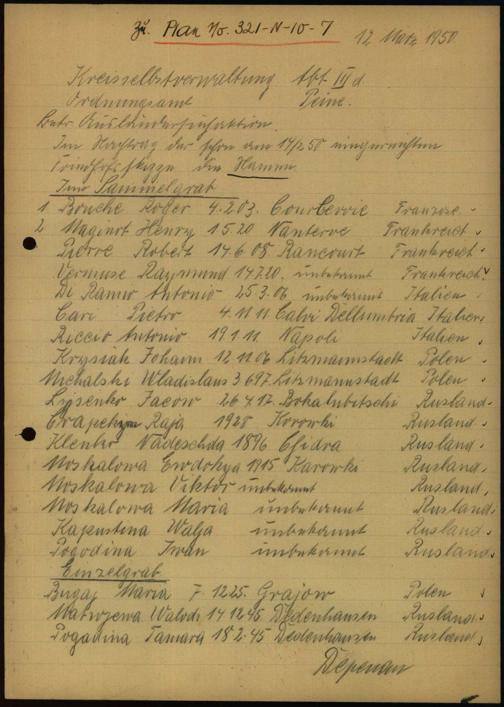 Zu. Plan No. 321-N-10-7
12 März 1950
Kreisselbstverwaltung Abt III d
Ordnungsamt Peine.
Betr. Ausländersuchaktion.
Im Nachtrag der schon am 17/2 50 eingereichten
Friedhofskizze die Namen
Im Sammelgrab
1 Bouche Roger 4.2.03. Courbevoie Franzose
2 Maginot Henry 1 5 20 Nanterre Frankreich
Pierre Robert 14 6 08 Rancourt Frankreich
Vermuse Raymund 14 7 20. unbekannt Frankreich
Di Ramio Antonio 25 3. 06 unbekannt Italien
Cari Pietro 4. 11 11 Calvi Dellumbria Italien
Riccio Antonio 19 1 11 Napoli Italien
Krysiak Johann 12 11 06 Litzmannstadt Polen
Michalski Wladislaus 3 6 97 Litzmannstadt Polen
Lysenko Jacow 26 4 17 Rusland
Raja 1928 Korowki Rusland
Klenko Nadeschda 1896 Rusland
Moskalowa Ewdokya 1915 Karowki Rusland
Moskalowa Viktor unbekannt Rusland
Moskalowa Maria unbekannt Rusland
Kapustina Walja unbekannt Rusland
Pogodina Iwan unbekannt Rusland
Einzelgrab
Bugaj Maria 7 12 25. Grajow Polen
Matwjewa Walodi 14 12 45 Dedenhausen Rusland
Pogadina Tamara 18 2. 45 Dedenhausen Rusland
Depenau